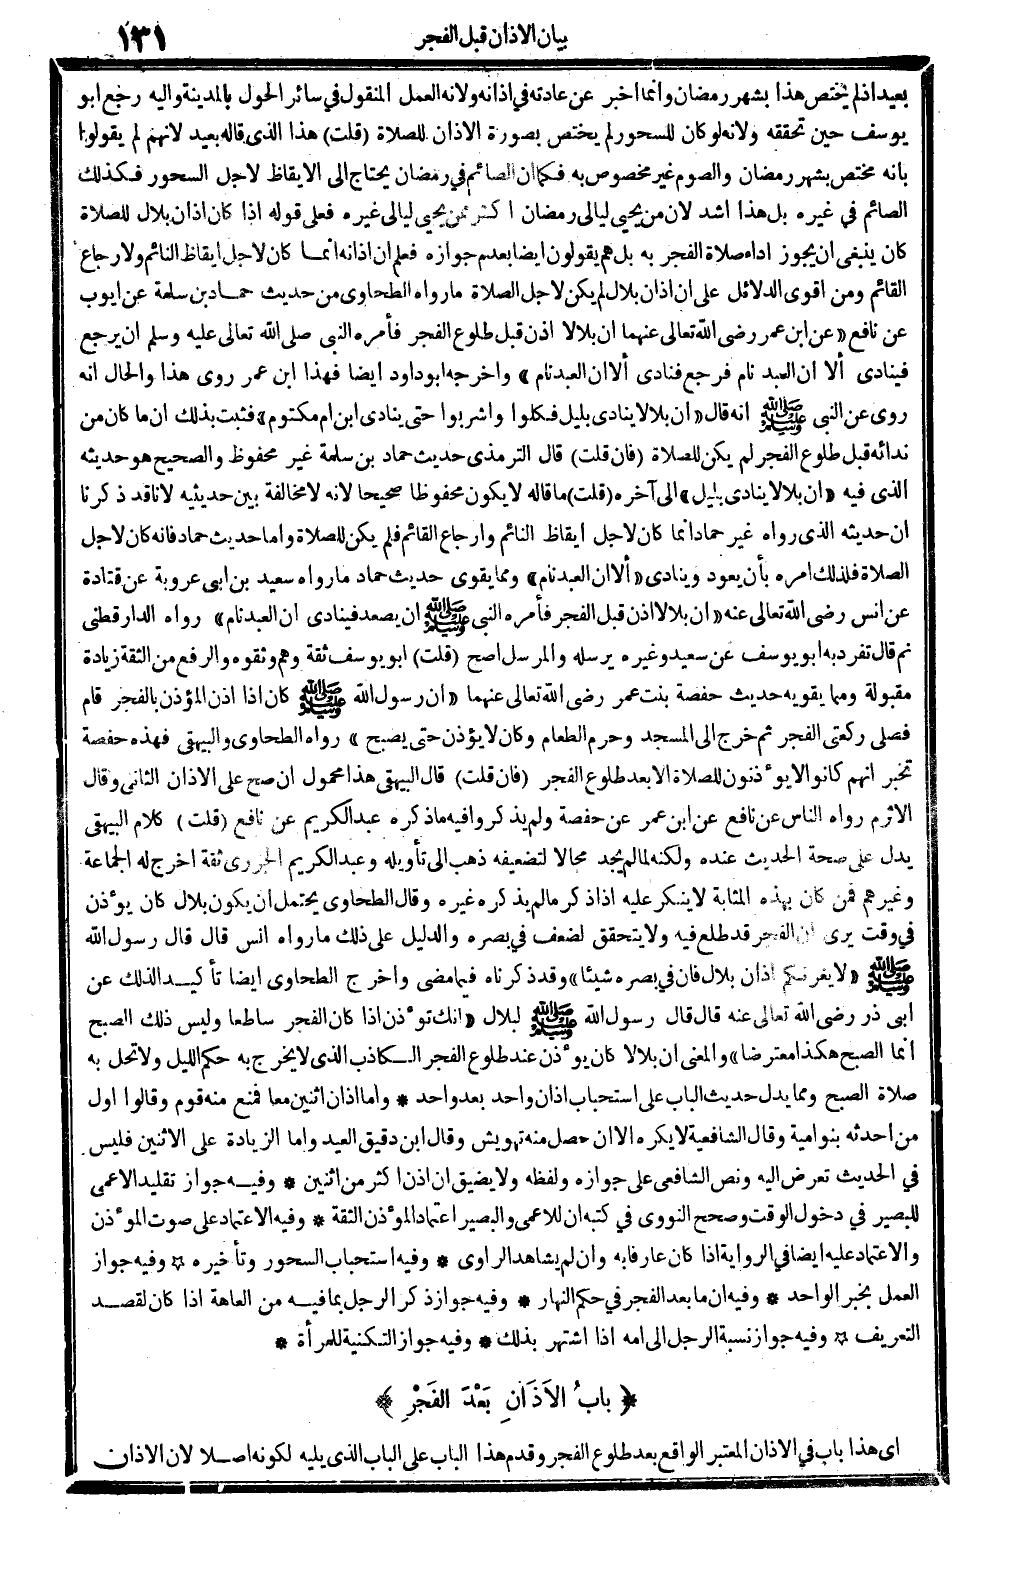 بيان الاذان قبل الفجر
١٣١
بعيد اذ لم يختص هذا بشهر رمضان وانما اخبر عن عادته في اذانه ولانه العمل المنقول في سائر الحول بالمدينة واليه رجع ابو
يوسف حين تحققه ولانه لو كان للسحور لم يختص بصورة الاذان للصلاة (قلت) هذا الذى قاله بعيد لانهم لم يقولوا
بانه مختص بشهر رمضان والصوم غير مخصوص به فكما ان الصائم في رمضان يحتاج الى الايقاظ لاجل السحور فكذلك
الصائم في غيره بل هذا اشد لان من يحيى ليالى رمضان اكثر ممن يحيى ليالى غيره فعلى قوله اذا كان اذان بلال للصلاة
كان ينبغى ان يجوز اداء صلاة الفجر به بل هم يقولون ايضا بعدم جوازه فعلم ان اذانه انما كان لاجل ايقاظ النائم ولارجاع
القائم ومن اقوى الدلائل على ان اذان بلال لم يكن لاجل الصلاة ما رواه الطحاوى من حديث حماد بن سلمة عن ايوب
عن نافع «عن ابن عمر رضى الله تعالى عنهما ان بلالا اذن قبل طلوع الفجر فأمره النبى صلى الله تعالى عليه وسلم ان يرجع
فينادى ألا ان العبد نام فرجع فنادى ألا ان العبد نام» واخرجه ابو داود ايضا فهذا ابن عمر روى هذا والحال انه
روى عن النبى ﷺ انه قال «ان بلالا ينادى بليل فكلوا واشربوا حتى ينادى ابن ام مكتوم» فثبت بذلك ان ما كان من
ندائه قبل طلوع الفجر لم يكن للصلاة (فان قلت) قال الترمذى حديث حماد بن سلمة غير محفوظ والصحيح هو حديثه
الذى فيه «ان بلالا ينادى بليل» الى آخره (قلت) ما قاله لا يكون محفوظا صحيحا لانه لا مخالفة بين حديثيه لانا قد ذكرنا
ان حديثه الذى رواه غير حماد انما كان لاجل ايقاظ النائم وارجاع القائم فلم يكن للصلاة واما حديث حماد فانه كان لاجل
الصلاة فلذلك امره بأن يعود وينادى «ألا ان العبد نام» ومما يقوى حديث حماد ما رواه سعيد بن ابى عروبة عن قتادة
عن انس رضى الله تعالى عنه «ان بلالا اذن قبل الفجر فأمره النبى ﷺ ان يصعد فينادى ان العبد نام» رواه الدارقطنى
ثم قال تفرد به ابو يوسف عن سعيد وغيره يرسله والمرسل اصح (قلت) ابو يوسف ثقة وهم وثقوه والرفع من الثقة زيادة
مقبولة ومما يقويه حديث حفصة بنت عمر رضى الله تعالى عنهما «ان رسول الله ﷺ كان اذا اذن المؤذن بالفجر قام
فصلى ركعتى الفجر ثم خرج الى المسجد وحرم الطعام وكان لا يؤذن حتى يصبح» رواه الطحاوى والبيهقى فهذه حفصة
تخبر انهم كانوا لا يؤذنون للصلاة الا بعد طلوع الفجر (فان قلت) قال البيهقى هذا محمول ان صح على الاذان الثانى وقال
الاثرم رواه الناس عن نافع عن ابن عمر عن حفصة ولم يذكروا فيه ما ذكره عبدالكريم عن نافع (قلت) كلام البيهقى
يدل على صحة الحديث عنده ولكنه لما لم يجد مجالا لتضعيفه ذهب الى تأويله وعبدالكريم الجزرى ثقة اخرج له الجماعة
وغيرهم فمن كان بهذه المثابة لا ينكر عليه اذا ذكر ما لم يذكره غيره وقال الطحاوى يحتمل ان يكون بلال كان يؤذن
في وقت يرى ان الفجر قد طلع فيه ولا يتحقق لضعف في بصره والدليل على ذلك ما رواه انس قال قال رسول الله
ﷺ «لا يغرنكم اذان بلال فان في بصره شيئا» وقد ذكرناه فيما مضى واخرج الطحاوى ايضا تأكيدا لذلك عن
ابى ذر رضى الله تعالى عنه قال قال رسول الله ﷺ لبلال «انك تؤذن اذا كان الفجر ساطعا وليس ذلك الصبح
انما الصبح هكذا معترضا» والمعنى ان بلالا كان يؤذن عند طلوع الفجر الكاذب الذى لا يخرج به حكم الليل ولا تحل به
صلاة الصبح ومما يدل حديث الباب على استحباب اذان واحد بعد واحد * واما اذان اثنين معا فمنع منه قوم وقالوا اول
من احدثه بنو امية وقال الشافعية لا يكره الا ان حصل منه تهويش وقال ابن دقيق العيد واما الزيادة على الاثنين فليس
في الحديث تعرض اليه ونص الشافعى على جوازه ولفظه ولا يضيق ان اذن اكثر من اثنين * وفيه جواز تقليد الاعمى
للبصير في دخول الوقت وصحح النووى في كتبه ان للاعمى والبصير اعتماد المؤذن الثقة * وفيه الاعتماد على صوت المؤذن
والاعتماد عليه ايضا في الرواية اذا كان عارفا به وان لم يشاهد الراوى * وفيه استحباب السحور وتأخيره * وفيه جواز
العمل بخبر الواحد * وفيه ان ما بعد الفجر في حكم النهار * وفيه جواز ذكر الرجل بما فيه من العاهة اذا كان لقصد
التعريف * وفيه جواز نسبة الرجل الى امه اذا اشتهر بذلك * وفيه جواز التكنية للمرأة *
﴿ بابُ الأَذَانِ بَعْدَ الفَجْرِ ﴾
اى هذا باب في الاذان المعتبر الواقع بعد طلوع الفجر وقدم هذا الباب على الباب الذى يليه لكونه اصلا لان الاذان